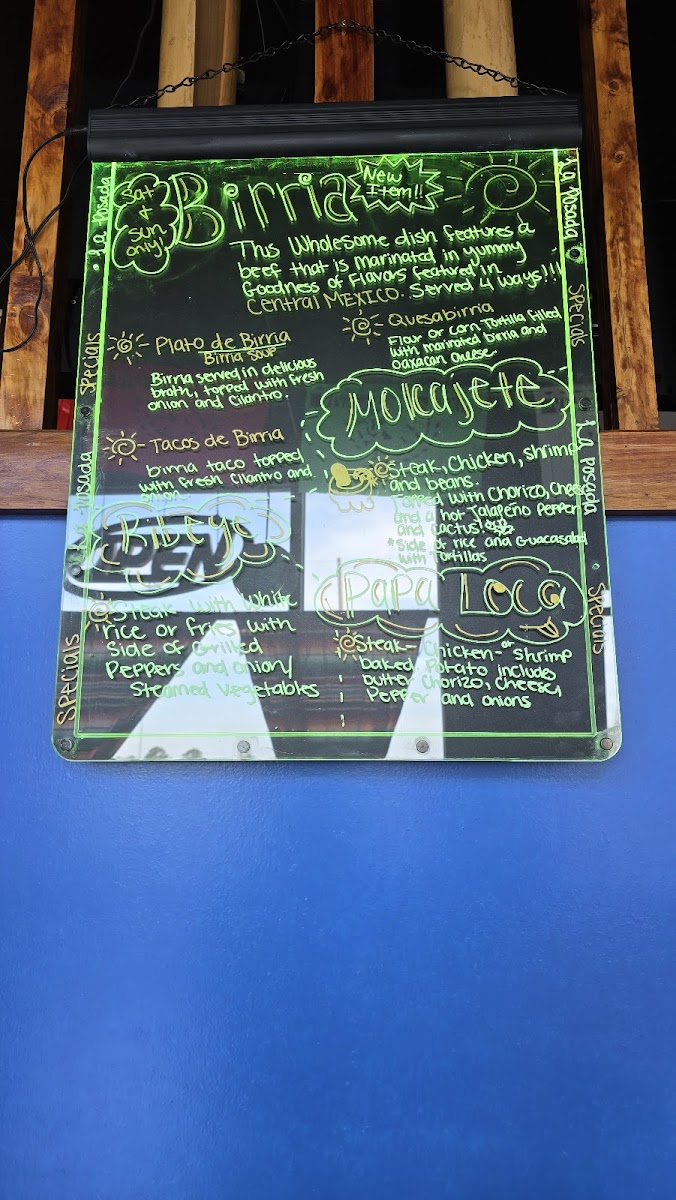 Sat
+
Sun
only!
Birria
New
Item!!
This Wholesome dish features a
beef that is marinated in yummy
Goodness of Flavors featured in
Central MEXICO. Served 4 ways!!!
Plato de Birria
Birria soup
Birria served in delicious
broth, topped with fresh
onion and Cilantro.
Tacos de Birria
birria taco topped
with fresh cilantro and
onion
Quesabirria
Flour or corn Tortilla filled
with marinated birria and
Oaxacan cheese
Molcajete
Steak, Chicken, shrimp
and beans.
Topped with Chorizo, Cheese
and a hot Jalapeño Pepper
and cactus!
*Side of rice and Guacasalad
with Tortillas
Ribeye
Steak with White
rice or fries with
Side of Grilled
Peppers and onion/
Steamed vegetables
Papa Loca
Steak - Chicken - or shrimp
baked Potato includes
butter chorizo, cheese,
Pepper and onions
La Posada
Specials
La Posada
Specials
La Posada
Specials
La Posada
Specials
OPEN